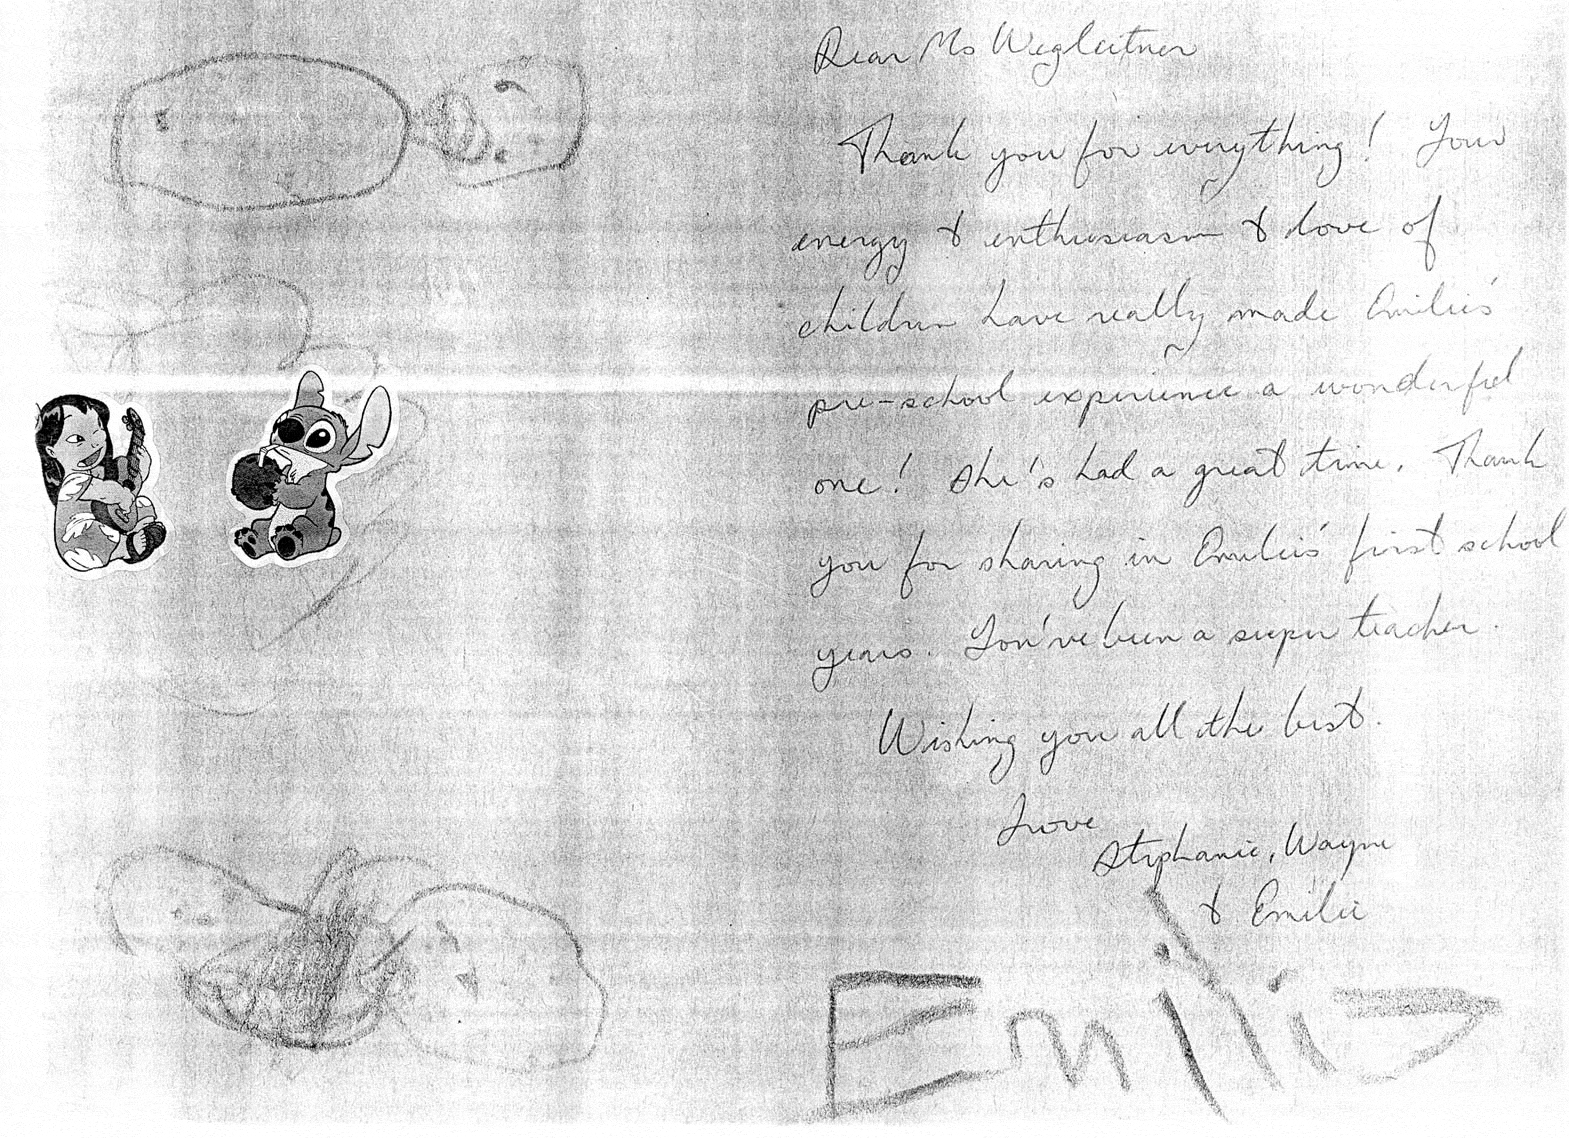 Dear Ms Wegleitner
Thank you for everything! Your
energy & enthusiasm & love of
children have really made Emilie's
pre-school experience a wonderful
one! She's had a great time. Thank
you for sharing in Emilie's first school
years. You've been a super teacher.
Wishing you all the best.
Love
Stephanie, Wayne
& Emilie
Emilie